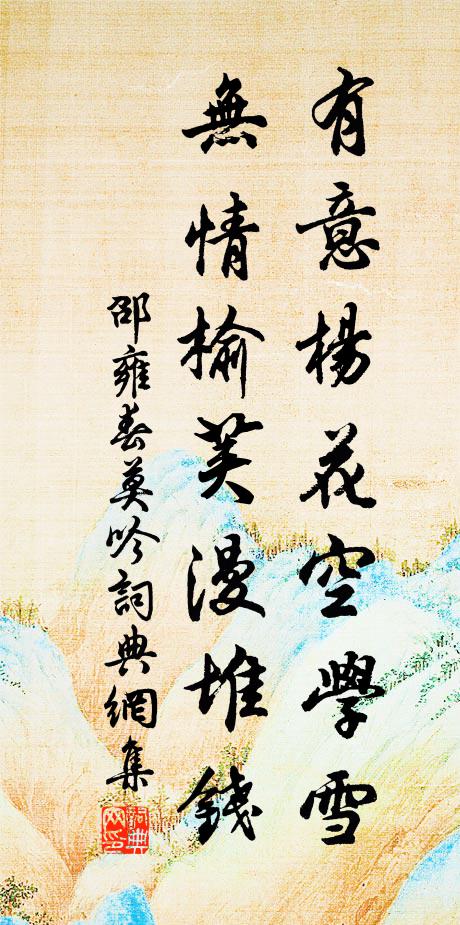 有意楊花空學雪
無情榆莢漫堆錢
邵雍春莫吟詞典網集
詞典網印